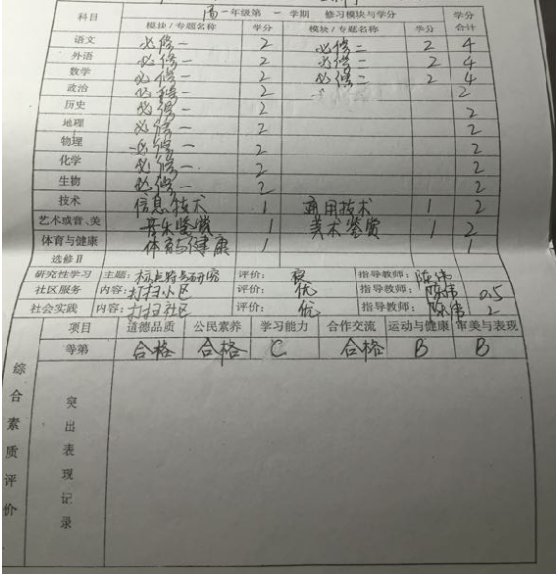 科目 高一年级第 一 学期 修习模块与学分 学分合计
模块/专题名称 学分 模块/专题名称 学分
语文 必修一 2 必修二 2 4
外语 必修一 2 必修二 2 4
数学 必修一 2 必修二 2 4
政治 必修一 2 2
历史 必修一 2 2
地理 必修一 2 2
物理 必修一 2 2
化学 必修一 2 2
生物 必修一 2 2
技术 信息技术 1 通用技术 1 2
艺术或音、美 音乐鉴赏 1 美术鉴赏 1 2
体育与健康 体育与健康 1 1
选修Ⅱ
研究性学习 主题: 研究 评价: 良 指导教师: 陈伟
社区服务 内容: 打扫小区 评价: 优 指导教师: 陈伟 0.5
社会实践 内容: 打扫社区 评价: 优 指导教师: 陈伟 2
项目 道德品质 公民素养 学习能力 合作交流 运动与健康 审美与表现
等第 合格 合格 C 合格 B B
综合素质评价
突出表现记录